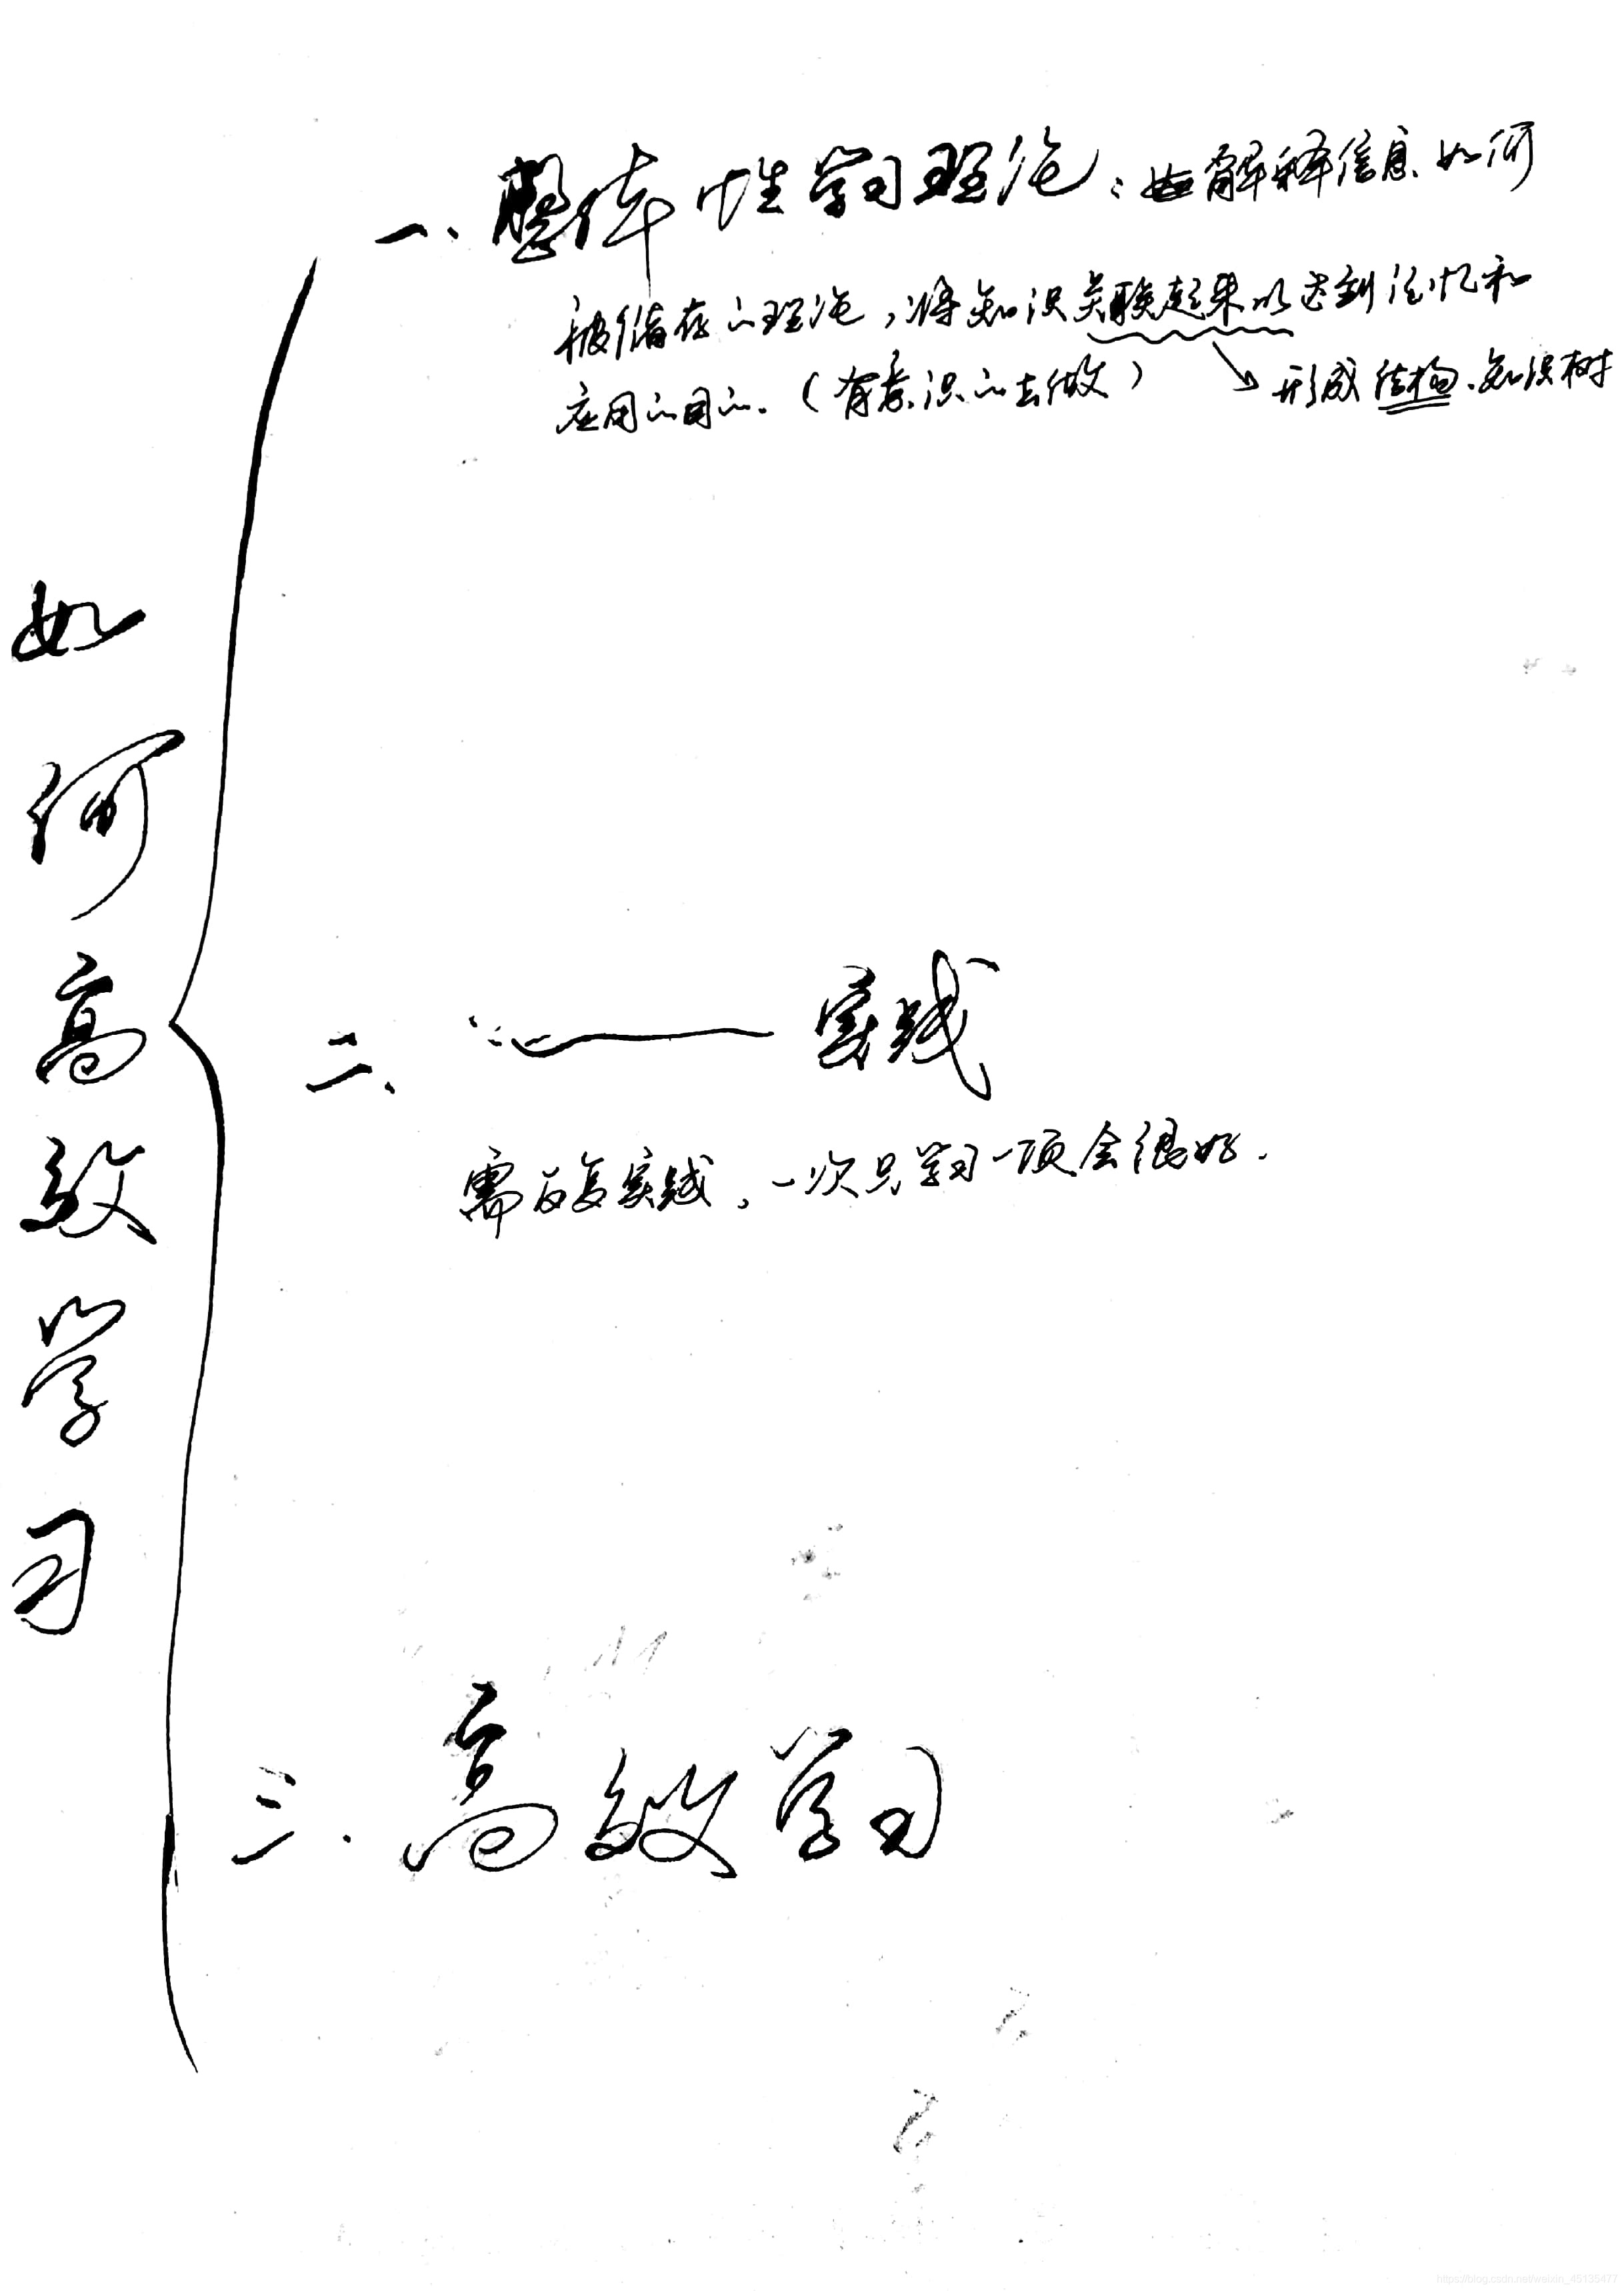 如何高效学习
一、整体性学习理论：解释信息如何
被储存的理论，将知识关联起来以达到记忆和
应用的目的.（有意识的去做）
形成结构、知识树
二、——实践
需反复实践，一次只学习一项会很好.
三.高效学习
https://blog.csdn.net/weixin_45135477